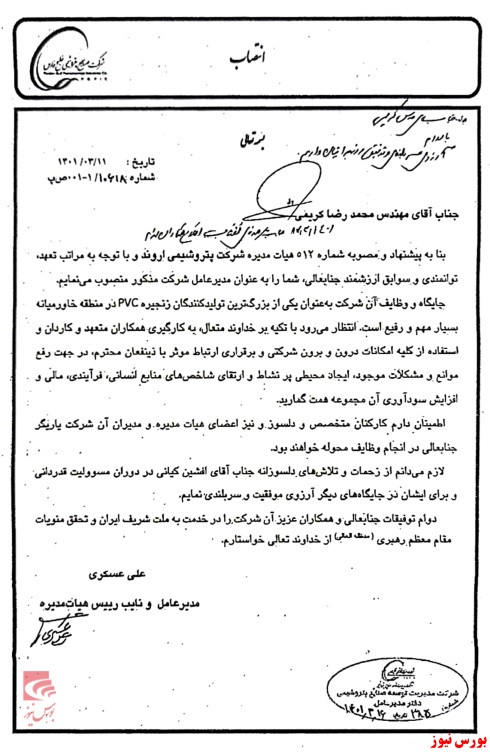 شرکت صنایع پتروشیمی خلیج فارس
انتصاب
بسمه تعالی
تاریخ : ۱۴۰۱/۰۳/۱۱
شماره :۱۰۶۱۸/ ۱-۰۰۱ص‌پ
جناب آقای مهندس محمد رضا کریمی
بنا به پیشنهاد و مصوبه شماره ۵۱۲ هیات مدیره شرکت پتروشیمی اروند و با توجه به مراتب تعهد،
توانمندی و سوابق ارزشمند جنابعالی، شما را به عنوان مدیرعامل شرکت مذکور منصوب می‌نمایم.
جایگاه و وظایف آن شرکت به‌عنوان یکی از بزرگ‌ترین تولیدکنندگان زنجیره PVC در منطقه خاورمیانه
بسیار مهم و رفیع است. انتظار می‌رود با تکیه بر خداوند متعال، به کارگیری همکاران متعهد و کاردان و
استفاده از کلیه امکانات درون و برون شرکتی و برقراری ارتباط موثر با ذینفعان محترم، در جهت رفع
موانع و مشکلات موجود، ایجاد محیطی پر نشاط و ارتقای شاخص‌های منابع انسانی، فرآیندی، مالی و
افزایش سودآوری آن مجموعه همت گمارید.
اطمینان دارم کارکنان متخصص و دلسوز و نیز اعضای هیات مدیره و مدیران آن شرکت یاریگر
جنابعالی در انجام وظایف محوله خواهند بود.
لازم می‌دانم از زحمات و تلاش‌های دلسوزانه جناب آقای افشین کیانی در دوران مسوولیت قدردانی
و برای ایشان در جایگاه‌های دیگر آرزوی موفقیت و سربلندی نمایم.
دوام توفیقات جنابعالی و همکاران عزیز آن شرکت را در خدمت به ملت شریف ایران و تحقق منویات
مقام معظم رهبری (مدظله العالی) از خداوند تعالی خواستارم.
علی عسکری
مدیرعامل و نایب رییس هیات‌مدیره
شرکت مدیریت توسعه صنایع پتروشیمی
دفتر مدیرعامل
بورس نیوز
بورس نیوز